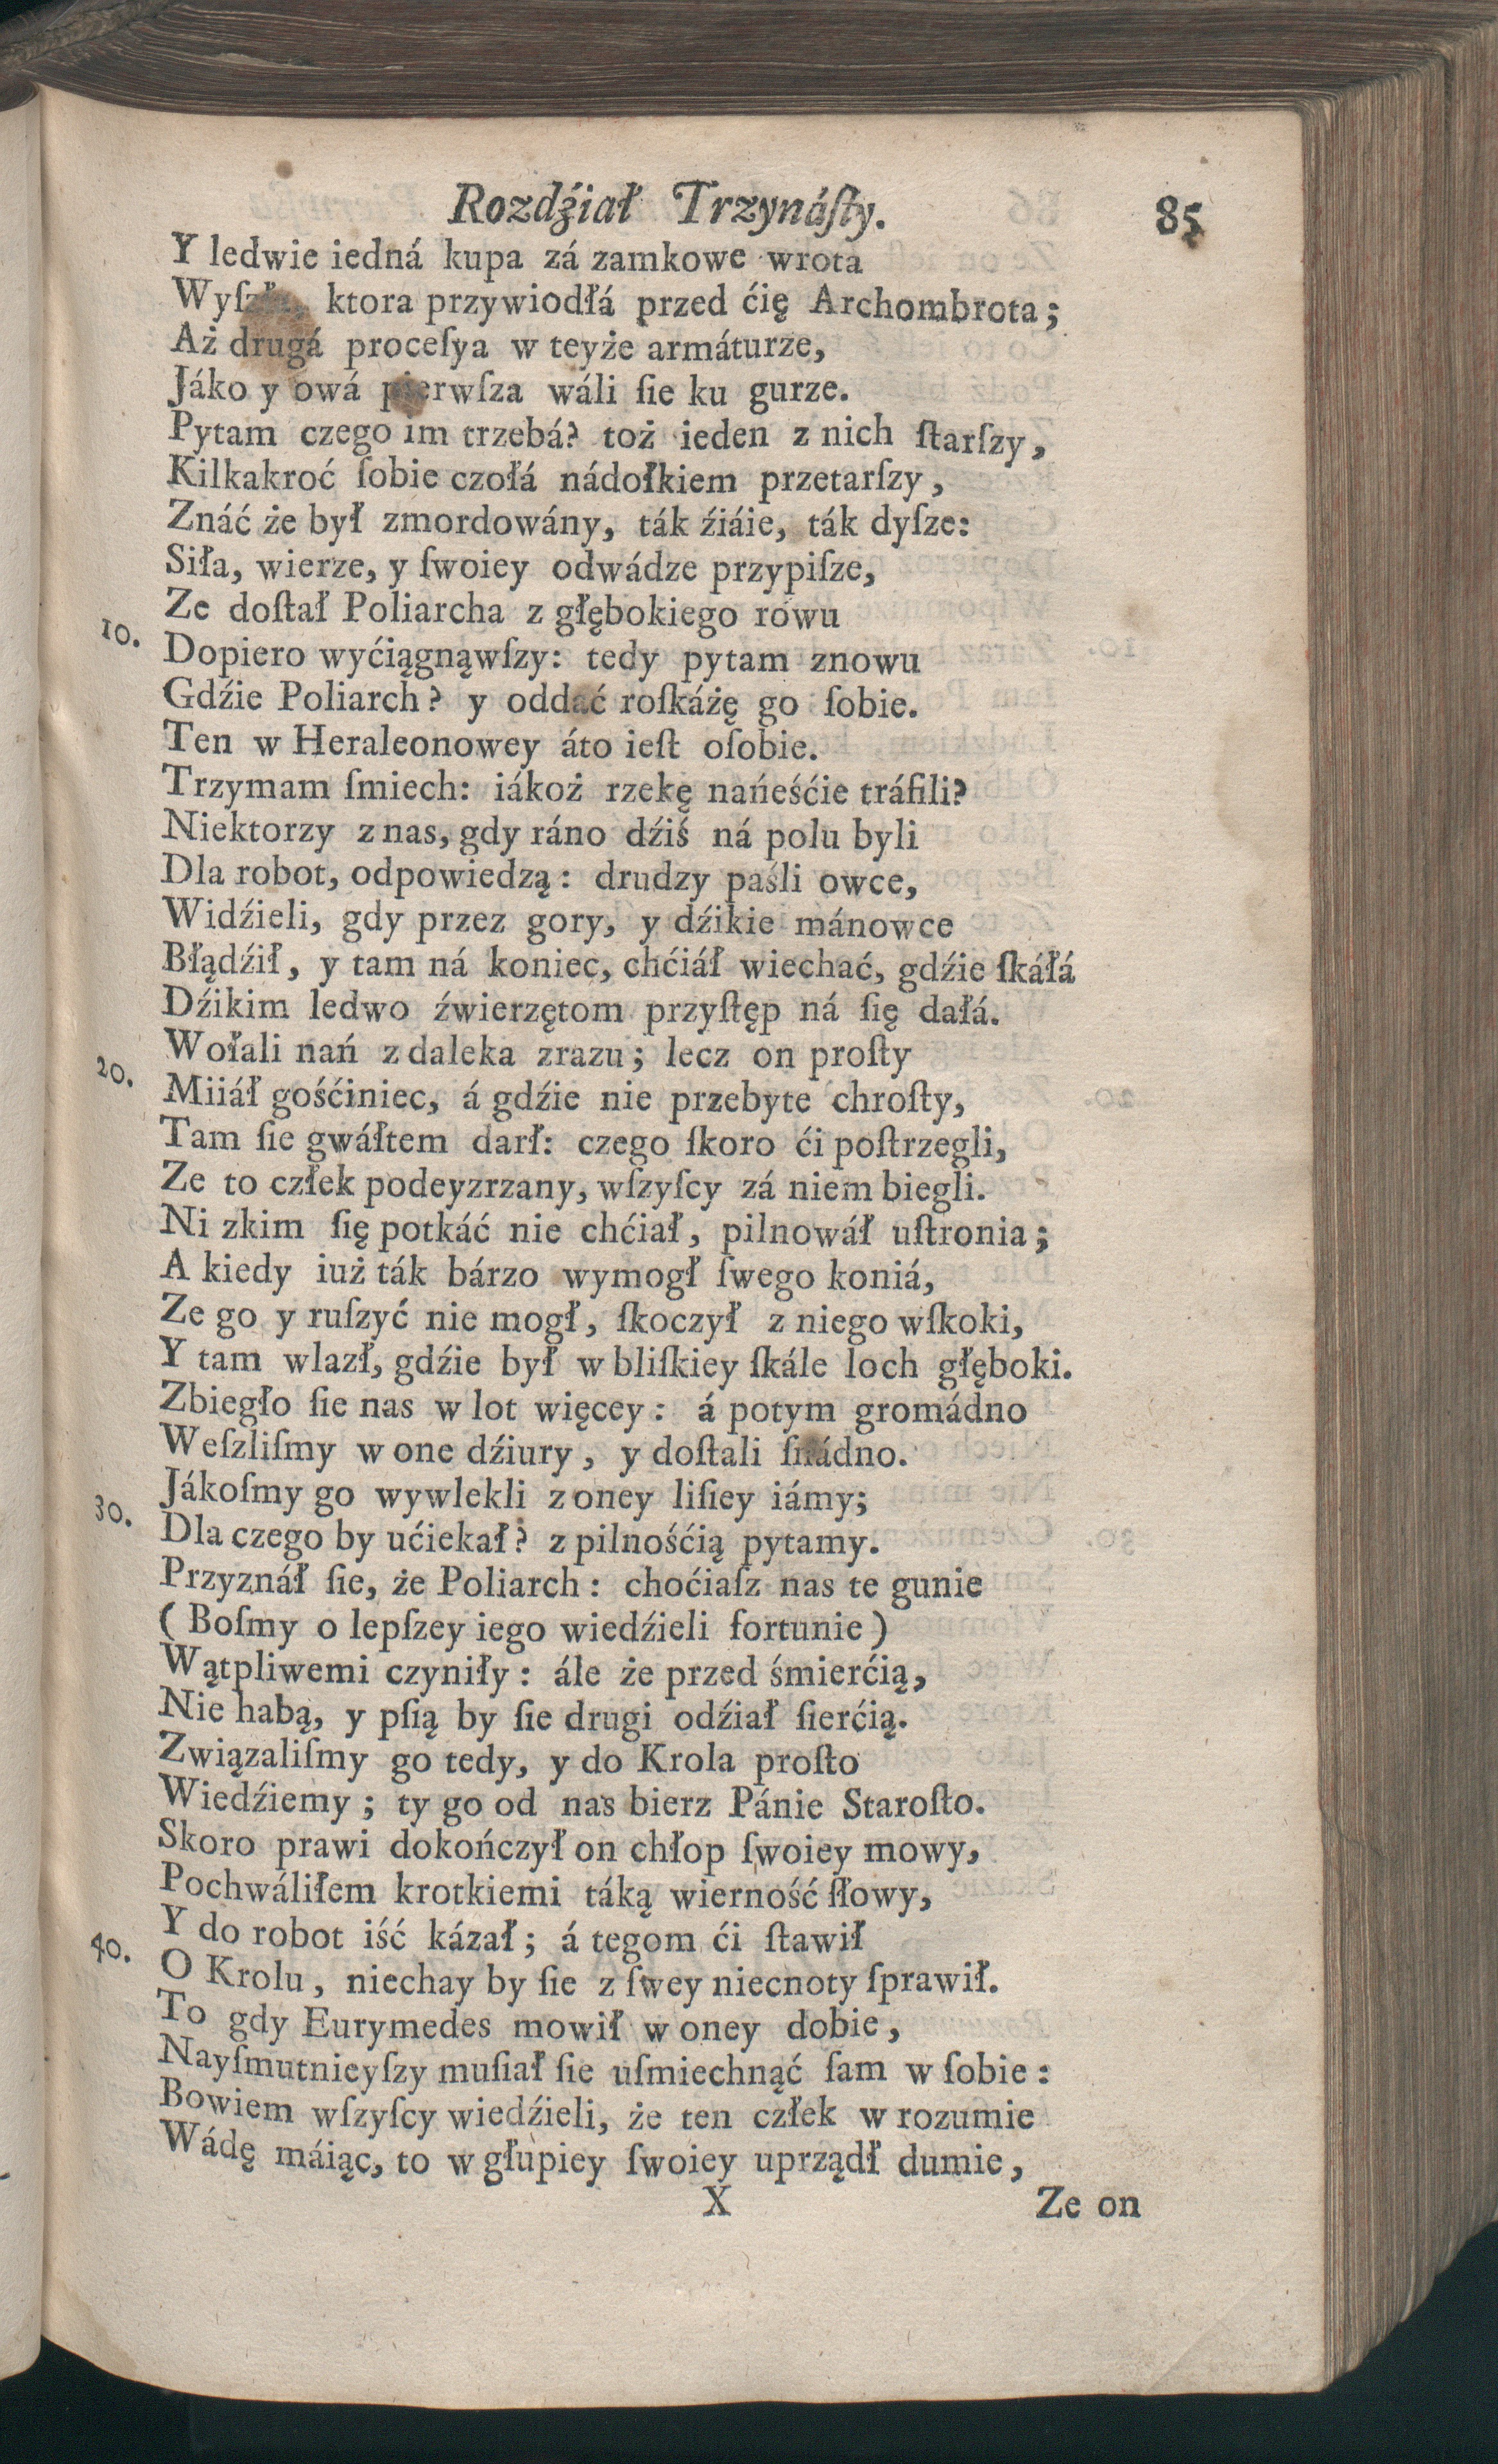 Rozdźiał Trzynáſty. 85
Y ledwie iedná kupa zá zamkowe wrota
Wyſzła, ktora przywiodłá przed ćię Archombrota;
Aż drugá proceſya w teyże armáturze,
Jáko y owá pierwſza wáli ſie ku gurze.
Pytam czego im trzebá? toż ieden z nich ſtarſzy,
Kilkakroć ſobie czołá nádołkiem przetarſzy,
Znáć że był zmordowány, ták źiáie, ták dyſze:
Siła, wierze, y ſwoiey odwádze przypiſze,
Ze doſtał Poliarcha z głębokiego rowu
10. Dopiero wyćiągnąwſzy: tedy pytam znowu
Gdźie Poliarch? y oddać roſkáżę go ſobie.
Ten w Heraleonowey áto ieſt oſobie.
Trzymam ſmiech: iákoż rzekę nańeśćie tráfili?
Niektorzy z nas, gdy ráno dźiś ná polu byli
Dla robot, odpowiedzą: drudzy paśli owce,
Widźieli, gdy przez gory, y dźikie mánowce
Błądźił, y tam ná koniec, chćiáł wiechać, gdźie ſkáłá
Dźikim ledwo źwierzętom przyſtęp ná ſię dałá.
Wołali nań z daleka zrazu; lecz on proſty
20. Miiáł gośćiniec, á gdźie nie przebyte chroſty,
Tam ſie gwáłtem darł: czego ſkoro ći poſtrzegli,
Ze to człek podeyzrzany, wſzyſcy zá niem biegli.
Ni zkim ſię potkáć nie chćiał, pilnowáł uſtronia;
A kiedy iuż ták bárzo wymogł ſwego koniá,
Ze go y ruſzyć nie mogł, ſkoczył z niego wſkoki,
Y tam wlazł, gdźie był w bliſkiey ſkále loch głęboki.
Zbiegło ſie nas w lot więcey: á potym gromádno
Weſzliſmy w one dźiury, y doſtali ſnádno.
Jákoſmy go wywlekli z oney liſiey iámy;
30. Dla czego by ućiekał? z pilnośćią pytamy.
Przyznáł ſie, że Poliarch: choćiaſz nas te gunie
(Boſmy o lepſzey iego wiedźieli fortunie)
Wątpliwemi czyniły: ále że przed śmierćią,
Nie habą, y pſią by ſie drugi odźiał ſierćią.
Związaliſmy go tedy, y do Krola proſto
Wiedźiemy; ty go od nas bierz Pánie Staroſto.
Skoro prawi dokończył on chłop ſwoiey mowy,
Pochwáliłem krotkiemi táką wierność ſłowy,
Y do robot iść kázał; á tegom ći ſtawił
40. O Krolu, niechay by ſie z ſwey niecnoty ſprawił.
To gdy Eurymedes mowił w oney dobie,
Nayſmutnieyſzy muſiał ſie uſmiechnąć ſam w ſobie:
Bowiem wſzyſcy wiedźieli, że ten człek w rozumie
Wádę máiąc, to w głupiey ſwoiey uprządł dumie,
X Ze on